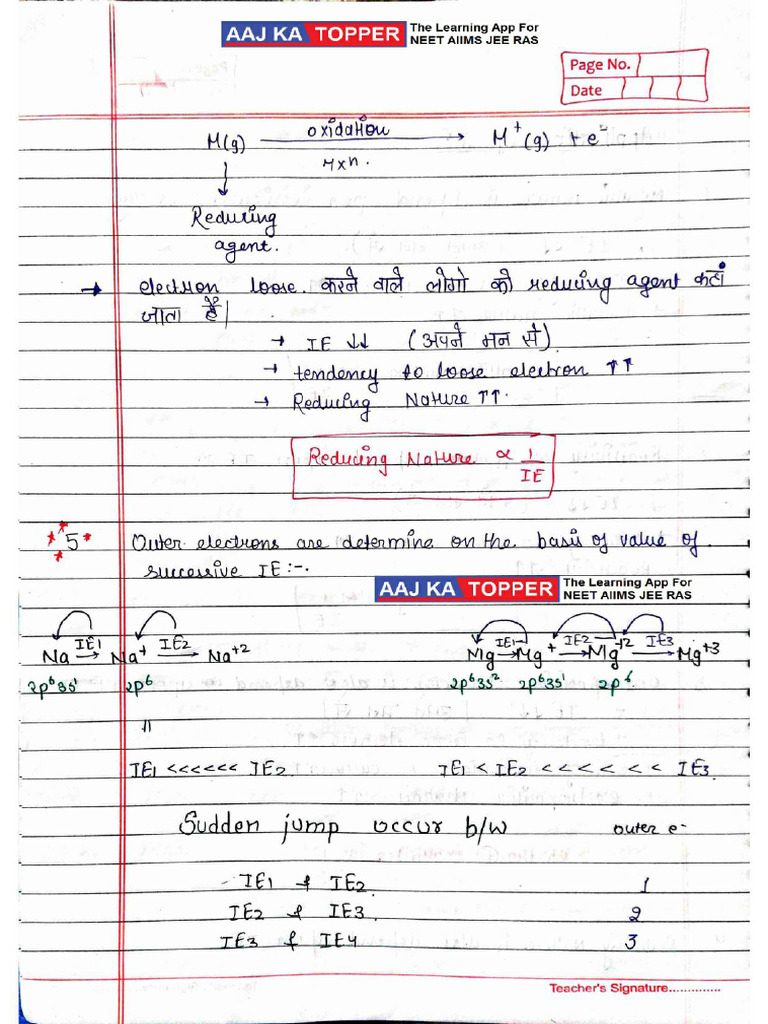 AAJ KA TOPPER The Learning App For
NEET AIIMS JEE RAS
Page No.
Date
oxidation
M(g) ⟶ M⁺(g) + e⁻
rxn.
↓
Reducing
agent.
→ electron loose करने वाले लोगो को reducing agent कहां
जाता हैं|
→ IE ↓↓ (अपने मन से)
→ tendency to loose electron ↑↑
→ Reducing Nature ↑↑.
Reducing Nature ∝ 1/IE
5 Outer electrons are determine on the basis of value of
successive IE :-.
AAJ KA TOPPER The Learning App For
NEET AIIMS JEE RAS
Na →IE1 Na⁺ →IE2 Na⁺² Mg →IE1 Mg⁺ →IE2 Mg⁺² →IE3 Mg⁺³
2p⁶3s¹ 2p⁶ 2p⁶3s² 2p⁶3s¹ 2p⁶
IE1 <<<<<< IE2 IE1 < IE2 < < < < < < IE3
Sudden jump occur b/w outer e-
IE1 & IE2 1
IE2 & IE3 2
IE3 & IE4 3
Teacher's Signature..............